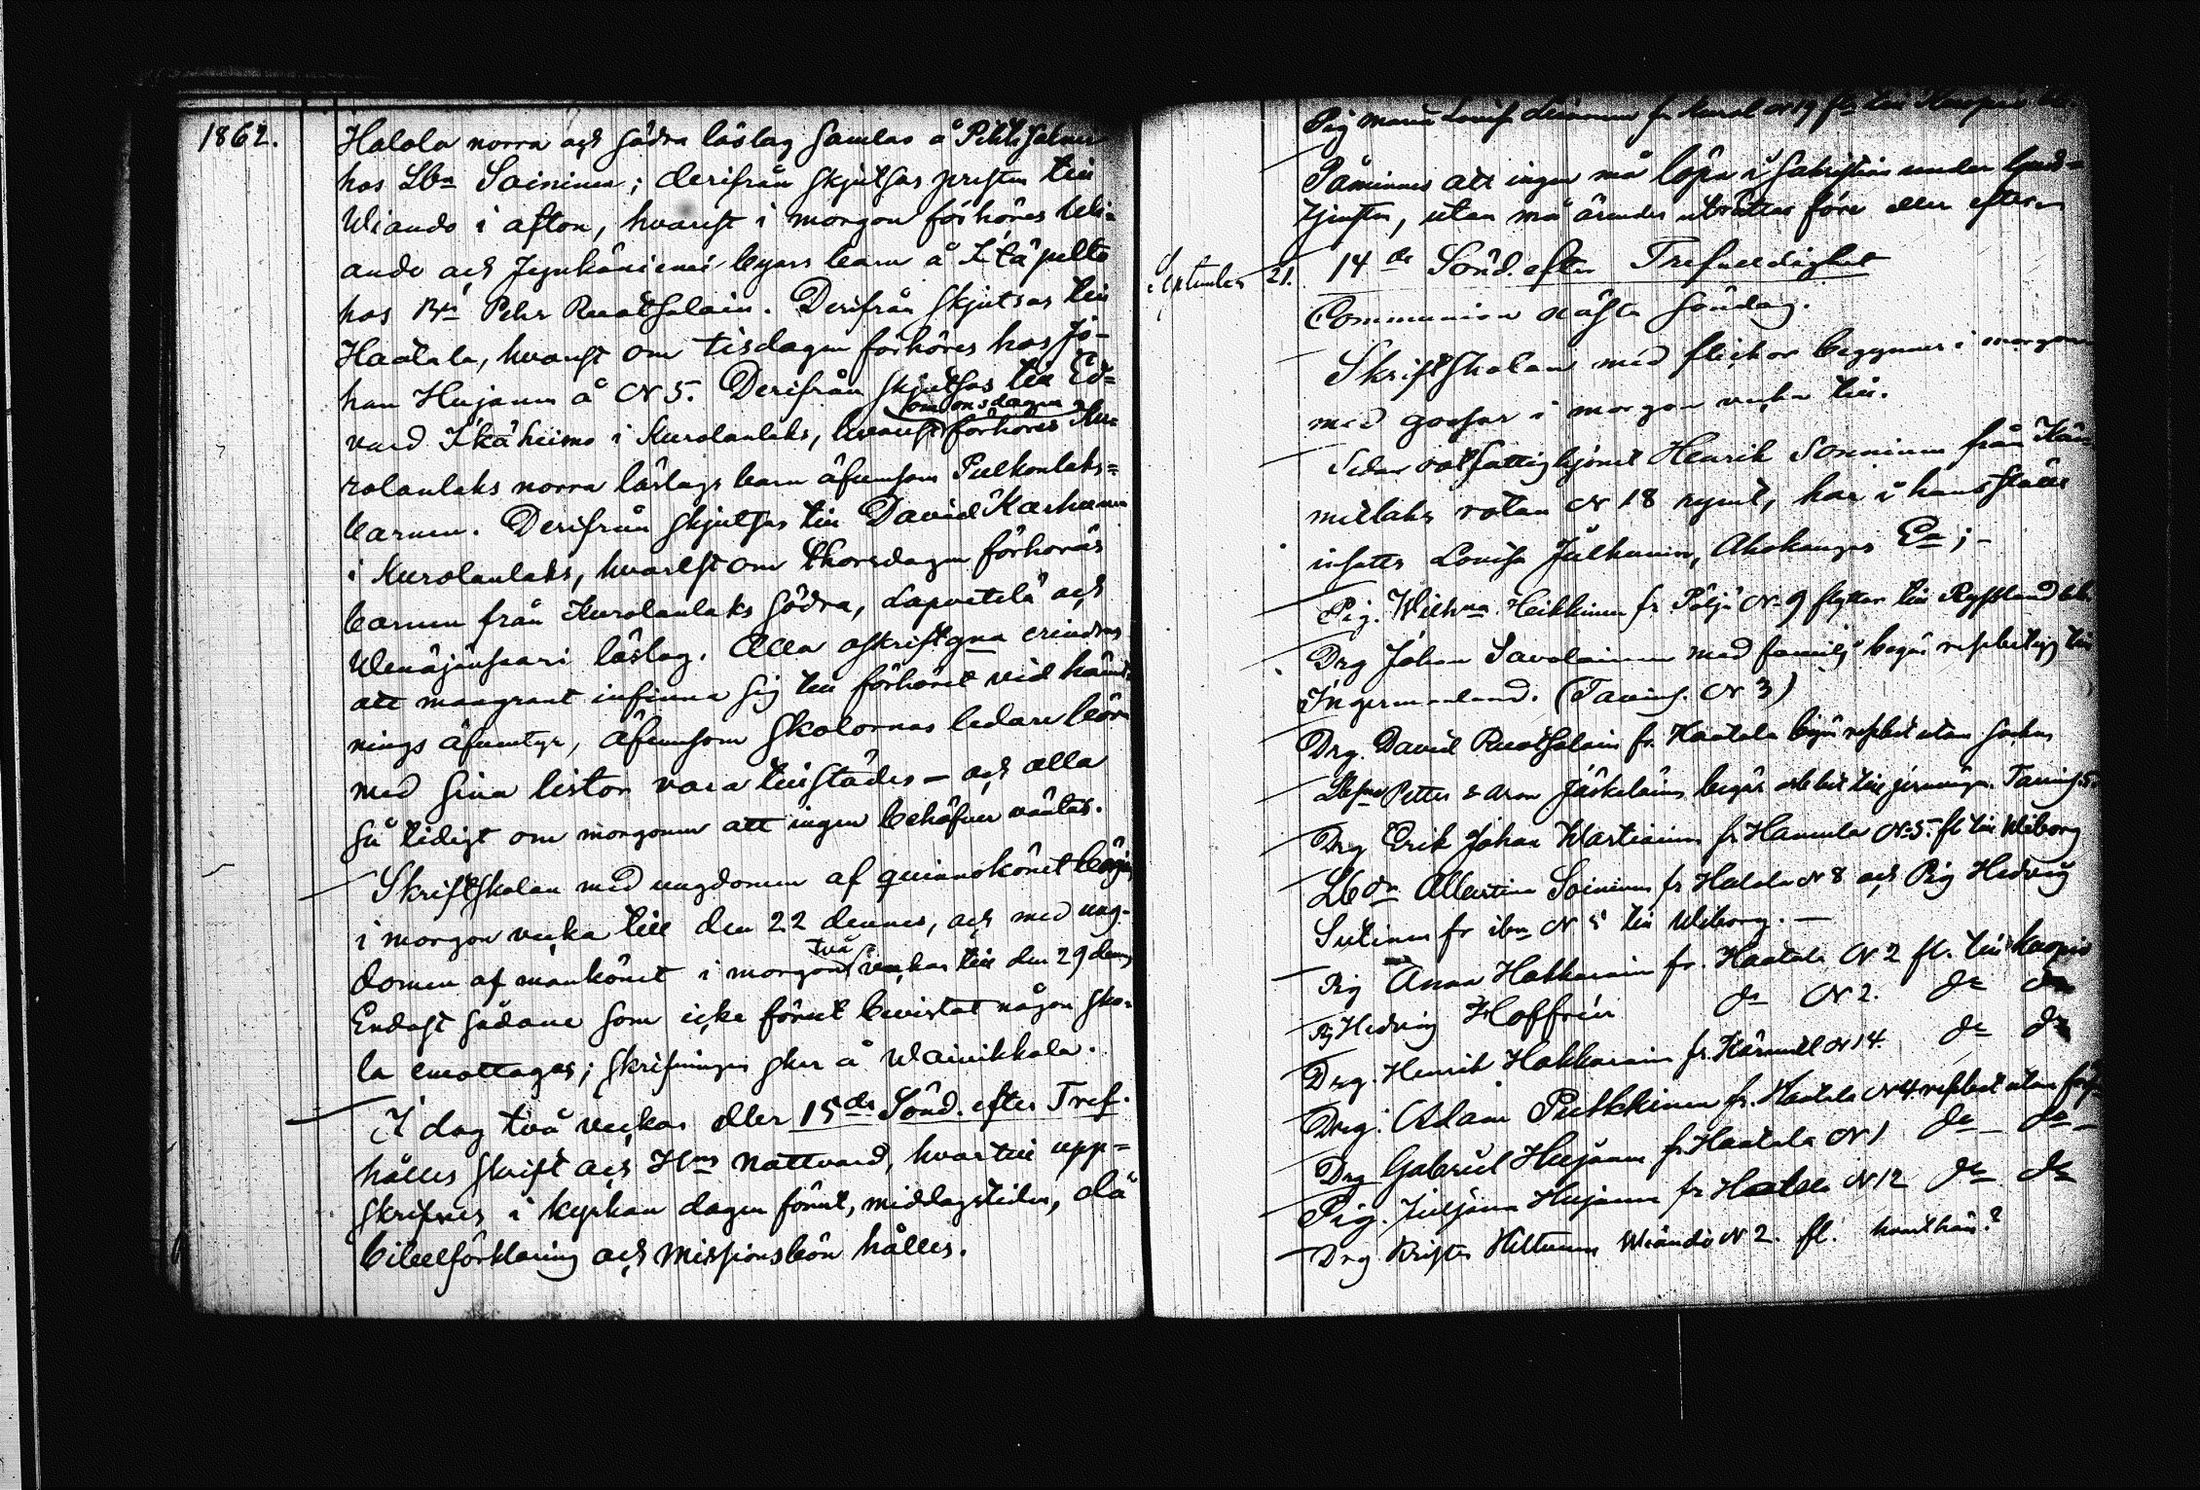 1862.
Halola norra och södra läslag samlas å Pitkäsalmi
hos Lbn Soininen; derifrån skjutsas presten till
Wiando i afton, hvarest i morgon förhöres Wi-
ando och Jynkäniemi byars barn å Itäpelto
hos Bn Pehr Ruotsalain. Derifrån skjutsas till
Haatala, hvarest om tisdagen förhöres hos Jo-
han Hujanen å N 5. Derifrån skjutsas till Ed-
vard Ikäheimo i Kurolanlaks, hvarest om onsdagen förhöres Ku-
rolanlaks norra läslags barn äfvensom Pulkonlaks-
barnen. Derifrån skjutsas till David Karhunen
i Kurolanlaks, hvarest om thorsdagen förhöras
barnen från Kurolanlaks södra, Lapvetelä och
Wenäjänsaari läslag. Alla oskriftgna erindras
att mangrant infinna sig till förhöret vid
nings äfventyr, äfvensom skolornas ledare böra
med sina listor vara tillstädes – och alla
så tidigt om morgonen att ingen behöfver väntas.
Skriftskolan med ungdomen af qvinnokönet börjas
i morgon vecka till den 22 dennes, och med ung-
domen af mankönet i morgon två veckor till den 29 dennes
Endast sådane som icke förut bevistat någon sko-
la emottages; skrifningen sker å Wainikkala.
I dag två veckor eller 15de Sönd. efter Tref.
hålles skrift och Hns nattvard, hvartill upp-
skrifves i kyrkan dagen förut, middagstiden, då
bibelförklaring och missionsbön hålles.
Pig Maria Lovisa
Påminnes att ingen må löpa i sakristian under Guds-
tjensten, utan må ärender uträttas före eller efter
September 21. 14de Sönd. efter Trefaldighet
Communion nästa söndag.
Skriftskolan med flickor begynner i morgon
med gossar i morgon vecka till.
Sedan rotfattighjonet Henrik Sonninen från
rotan N 18 rymt, har i hans ställe
insatts Lovisa Julkunen, Ahokangas Ea; –
Pig. Wilhna Heikkinen fr Pöljä N 9 flyttar till Ryssland
Drg Johan Savolainen med familj begär till
Ingermanland. (Tavins. N 3)
Drg. David Ruotsalain fr. Haatala begär utan
Petter & Aron Jäskeläin begär till Tavins.
Drg Erik Johan Wartiainen fr Hamula N 5. fl till Wiborg
Lbdr Albertina Soininen fr Halola N 8 och Pig Hedvig
Sutinen fr ibm N 5 till Wiborg. –
Pig Anna Hakkarain fr. Haatala N 2 fl. till Kuopio
Pig Hedvig Hoffrén do N 2. do do
Drg. Henrik Hakkarain fr. N 14. do do
Drg. Adam Pulkkinen fr. Haatala N 4. utan
Drg Gabriel Hujanen fr Haatala N 1 do – do –
Pig. Juljana Hujanen fr Haatala N 12 do do
Drg Krister Hiltunen Wiando N 2. fl.